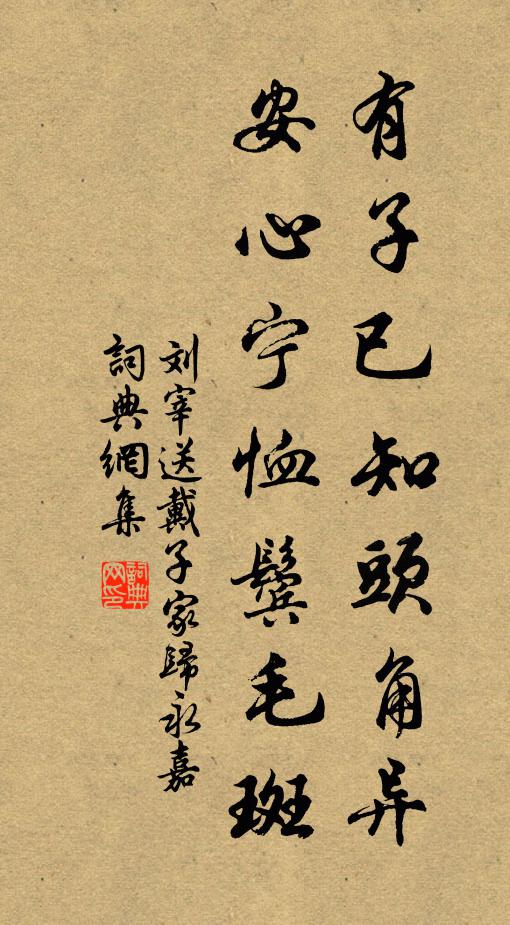 有子已知頭角异
安心宁恤鬓毛斑
刘宰送戴子家歸永嘉
詞典網集
詞典网印